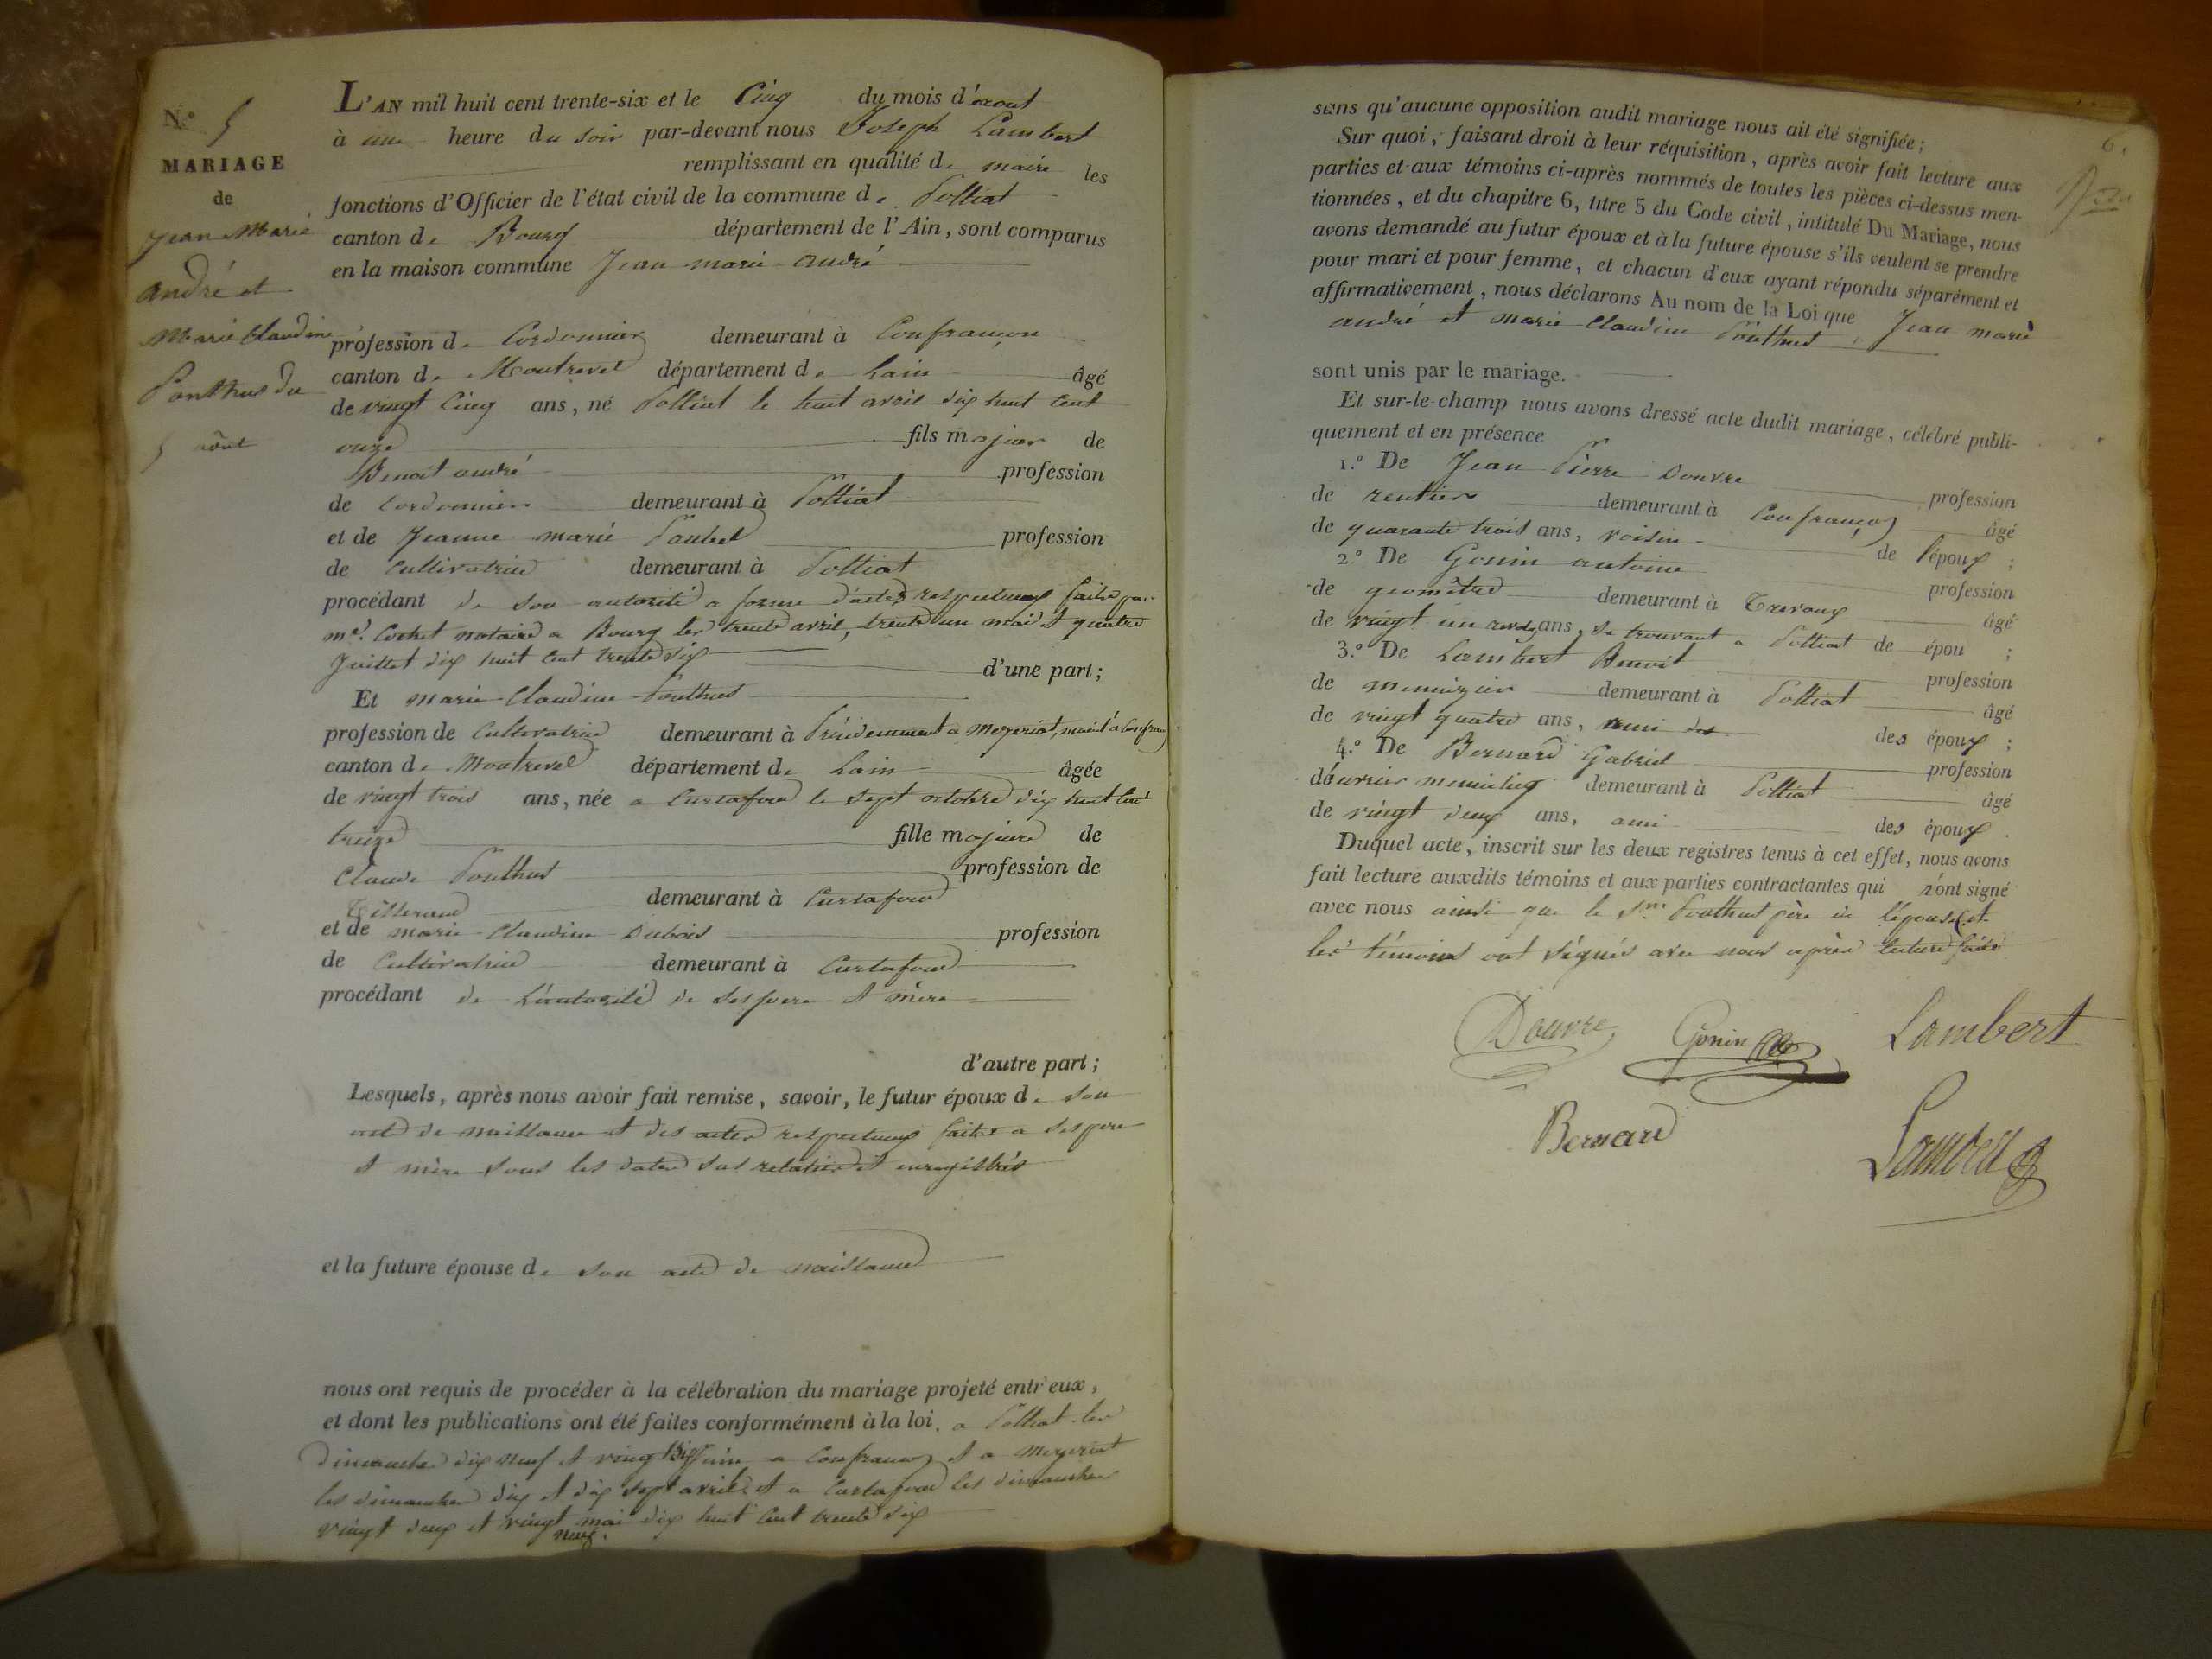 N.º 5
MARIAGE
de
Jean Marie
André et
Marie Claudine
Ponthus du
5 aôut
L'AN mil huit cent trente-six et le Cinq du mois d'aout
à une heure du soir par-devant nous Joseph Lambert
remplissant en qualité de maire les
fonctions d'Officier de l'état civil de la commune de Polliat
canton de Bourg département de l'Ain, sont comparus
en la maison commune Jean marie andré
profession de Cordonnier demeurant à Confrançon
canton de Montrevel département de Lain âgé
de vingt Cinq ans, né Polliat le huit avril dix huit Cent
onze fils majeur de
Benoit andré profession
de Cordonnier demeurant à Polliat
et de Jeanne marie Paubel profession
de Cultivatrice demeurant à Polliat
procédant de son autorité a forme d'actes respectueux faits par
me. Cochet notaire a Bourg les trente avril, trente un mai et quatre
Juillet dix huit Cent trente six d'une part;
Et marie Claudine Ponthus
profession de Cultivatrice demeurant à Précédemment a mezeriat, maint. à Confrançon
canton de Montrevel département de Lain âgée
de vingt trois ans, née a Curtafond le sept octobre dix huit Cent
treize fille majeure de
Claude Ponthus profession de
Tisserand demeurant à Curtafond
et de marie Claudine Dubois profession
de Cultivatrice demeurant à Curtafond
procédant de Lautorité de ses pere et mère
d'autre part;
Lesquels, après nous avoir fait remise, savoir, le futur époux de son
acte de naissance et des actes respectueux faits a ses pere
et mère sous les dates sus relatées et enregistrés
et la future épouse de son acte de naissance
nous ont requis de procéder à la célébration du mariage projeté entr'eux,
et dont les publications ont été faites conformément à la loi. a Polliat les
dimanches dix neuf et vingt six Juin a Confrançon et a Mezeriat
les dimanches dix et dix sept avril et a Curtafond les dimanches
vingt deux et vingt neuf mai dix huit Cent trente six
6.
sans qu'aucune opposition audit mariage nous ait été signifiée;
Sur quoi, faisant droit à leur réquisition, après avoir fait lecture aux
parties et aux témoins ci-après nommés de toutes les pièces ci-dessus men-
tionnées, et du chapitre 6, titre 5 du Code civil, intitulé Du Mariage, nous
avons demandé au futur époux et à la future épouse s'ils veulent se prendre
pour mari et pour femme, et chacun d'eux ayant répondu séparément et
affirmativement, nous déclarons Au nom de la Loi que Jean marie
andré et marie Claudine Ponthus
sont unis par le mariage.
Et sur-le-champ nous avons dressé acte dudit mariage, célébré publi-
quement et en présence
1.º De Jean Pierre Douvre profession
de rentier demeurant à Confrançon âgé
de quarante trois ans, voisin de l'époux;
2.º De Gonin antoine profession
de geomêtre demeurant à Trevoux âgé
de vingt un ans, se trouvant a Polliat de épou ;
3.º De Lambert Benoit profession
de menuizier demeurant à Polliat âgé
de vingt quatre ans, ami des époux;
4.º De Bernard Gabriel profession
d'ouvrier menuisier demeurant à Polliat âgé
de vingt deux ans, ami des époux.
Duquel acte, inscrit sur les deux registres tenus à cet effet, nous avons
fait lecture auxdits témoins et aux parties contractantes qui n'ont signé
avec nous ainsi que le Sr. Ponthus père de l'épouse et
les témoins ont signés avec nous après lecture faite
Douvre Gonin Lambert
Bernard Lambert